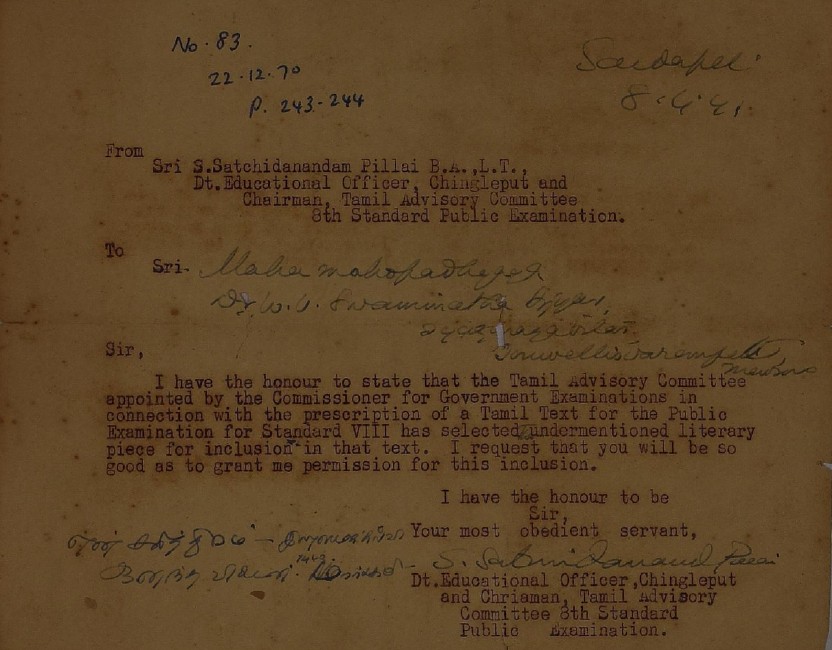 No. 83.
22-12-70
P. 243-244
Saidapet
8.4.41
From
Sri S.Satchidanandam Pillai B.A.,L.T.,
Dt.Educational Officer, Chingleput and
Chairman, Tamil Advisory Committee
8th Standard Public Examination.
To
Sri- Maha mahopadhyaya
Dr. V. Swaminatha Iyer,
Sir,
I have the honour to state that the Tamil Advisory Committee
appointed by the Commissioner for Government Examinations in
connection with the prescription of a Tamil Text for the Public
Examination for Standard VIII has selected undermentioned literary
piece for inclusion in that text. I request that you will be so
good as to grant me permission for this inclusion.
I have the honour to be
Sir,
Your most obedient servant,
என் சரித்திரம் -
S. Satchidanandam Pillai
Dt.Educational Officer,Chingleput
and Chriaman, Tamil Advisory
Committee 8th Standard
Public Examination.